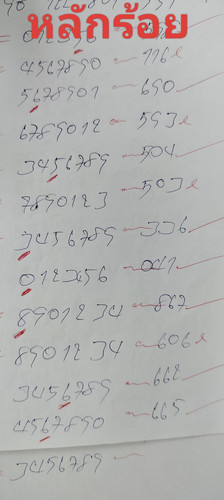 หลักร้อย
4567890 - 776
5678901 - 690
6789012 - 593
3456789 - 504
7890123 - 503
3456789 - 336
0123456 - 041
8901234 - 867
8901234 - 606
3456789 - 662
4567890 - 665
3456789 -